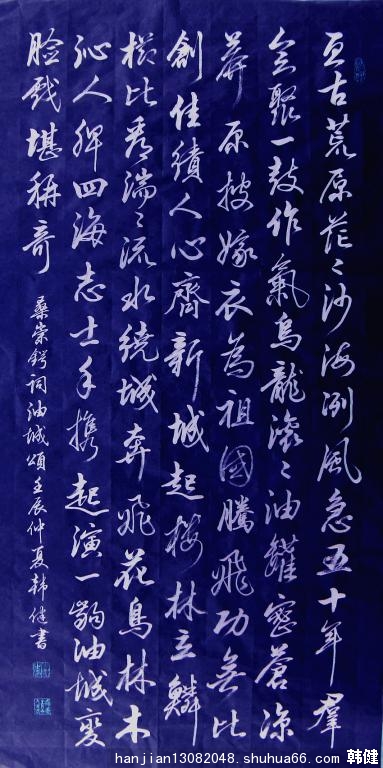 亘古荒原茫〻沙海冽風急五十年群
会聚一鼓作氣烏龍滚〻油罐密蒼凉
莽原披嫁衣為祖國騰飛功無比
創佳績人心齊新城起楼林立鱗
櫛比秀湍〻流水绕城奔飛花鳥林木
沁人脾四海志士手携起演一齣油城变
脸戲堪称奇
桑崇鍔词油城頌壬辰仲夏韩健書
hanjian13082048.shuhua66.com 韩健